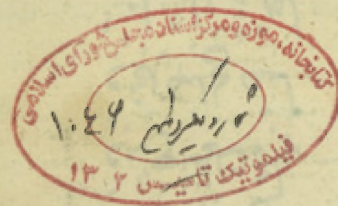 کتابخانه، موزه و مرکز اسناد مجلس شورای اسلامی
۱۰۴۶
فیلموتیک تاسیس ۱۳۰۲